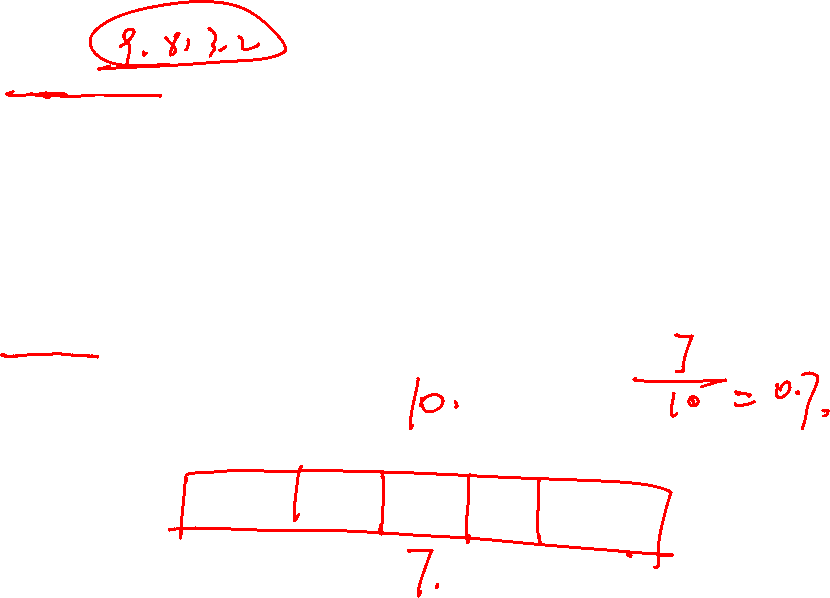 9.8,3.2
10.
7/10 = 0.7.
7.